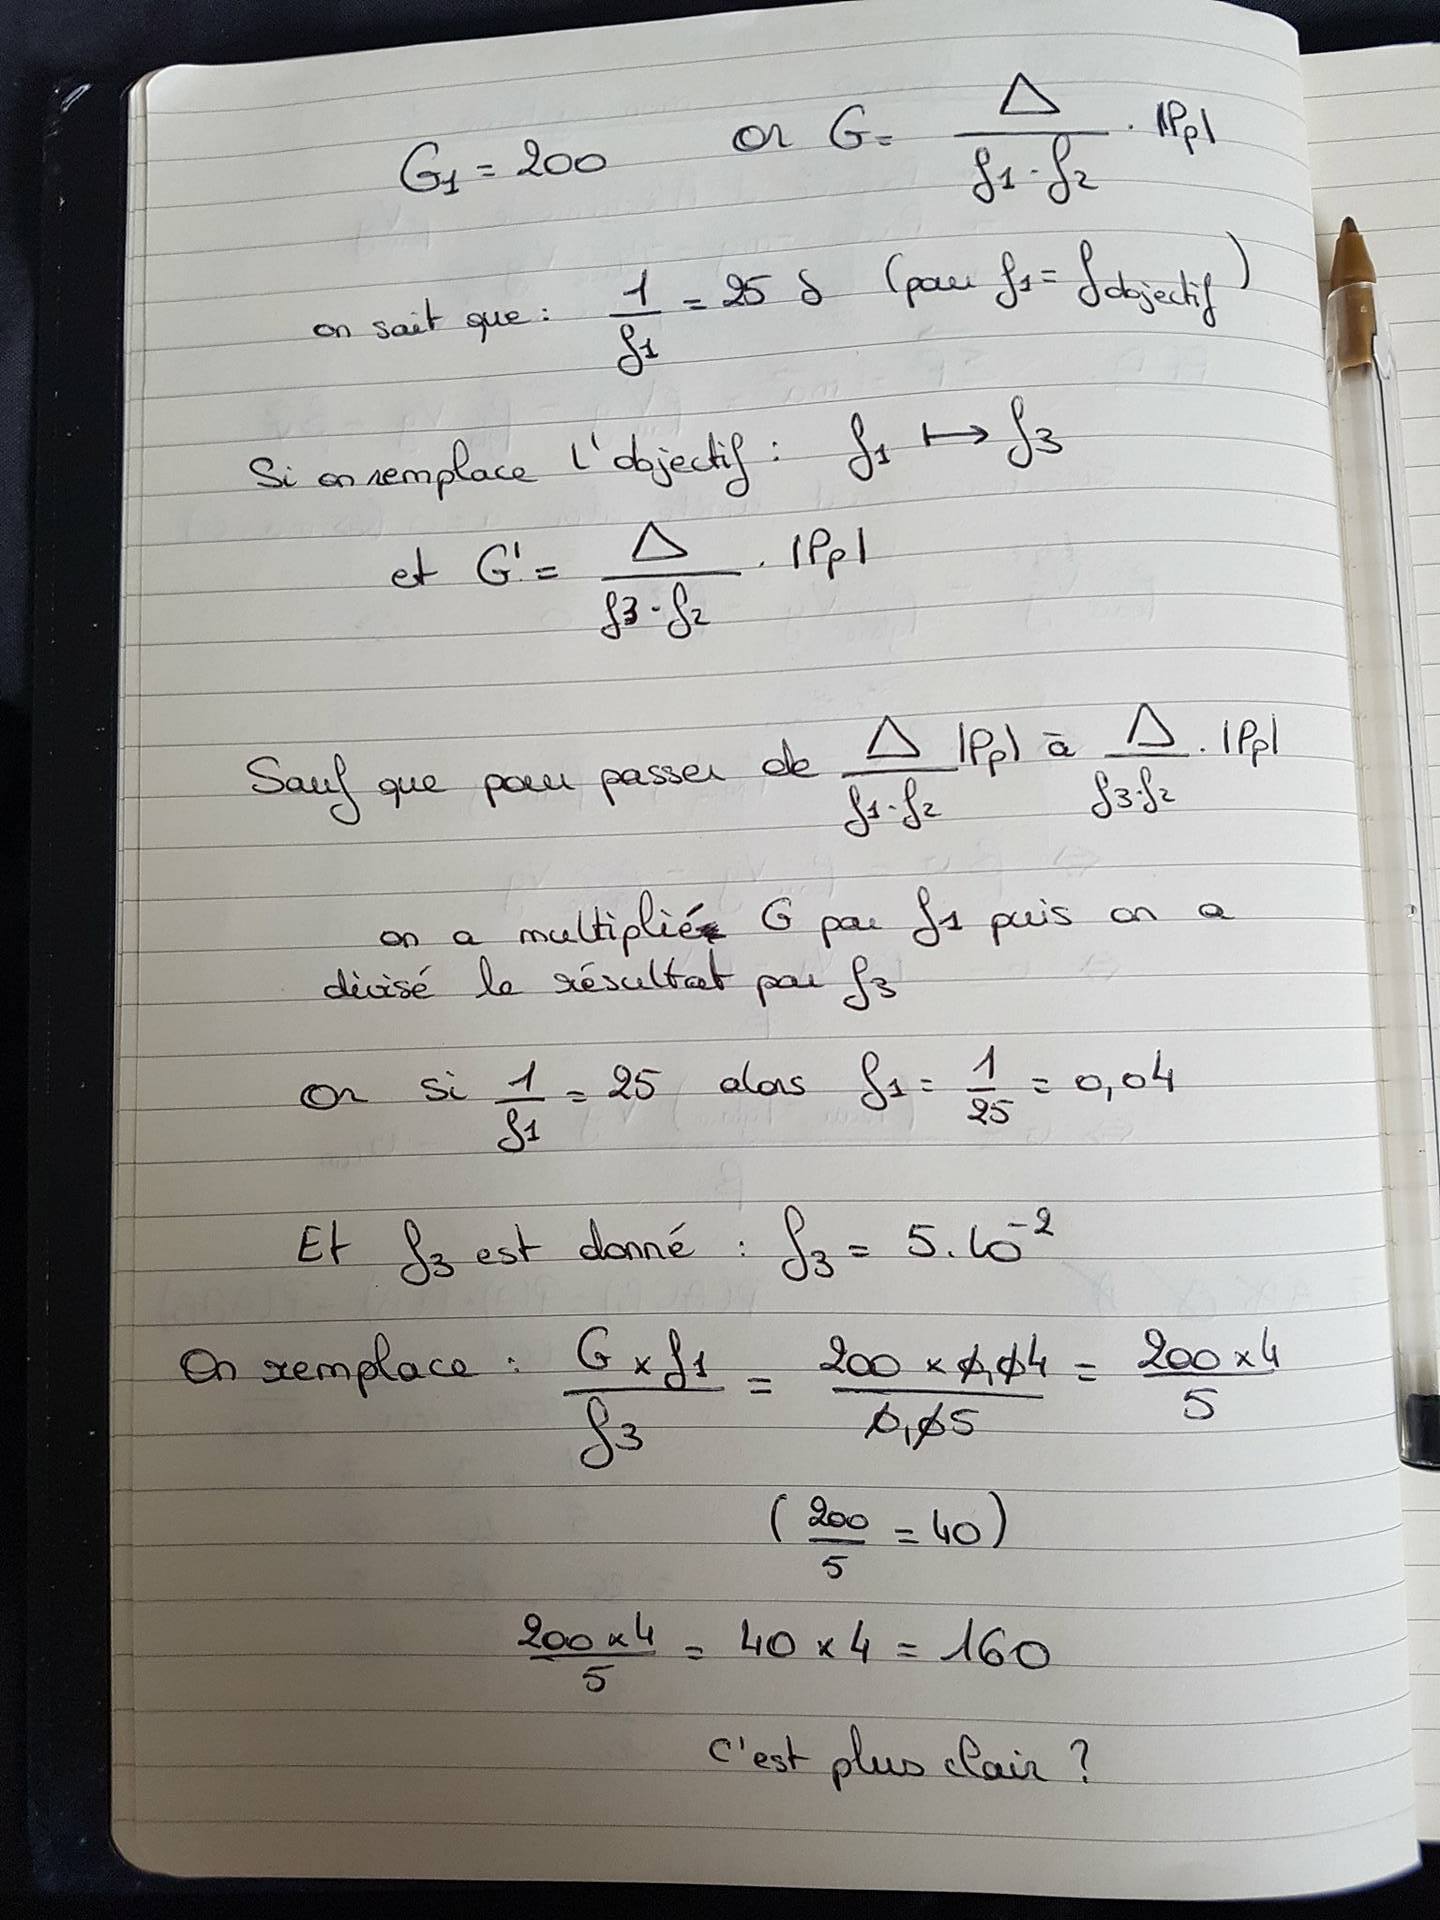 G1 = 200 or G = Δ / f1 · f2 · |Pp|
on sait que : 1/f1 = 25 δ (pour f1 = f objectif)
Si on remplace l'objectif : f1 ↦ f3
et G' = Δ / f3 · f2 · |Pp|
Sauf que pour passer de Δ / f1 · f2 |Pp| à Δ / f3 · f2 · |Pp|
on a multiplié G par f1 puis on a
divisé le résultat par f3
or si 1/f1 = 25 alors f1 = 1/25 = 0,04
Et f3 est donné : f3 = 5.10⁻²
On remplace : G × f1 / f3 = 200 × 0,04 / 0,05 = 200 × 4 / 5
(200/5 = 40)
200 × 4 / 5 = 40 × 4 = 160
C'est plus clair ?